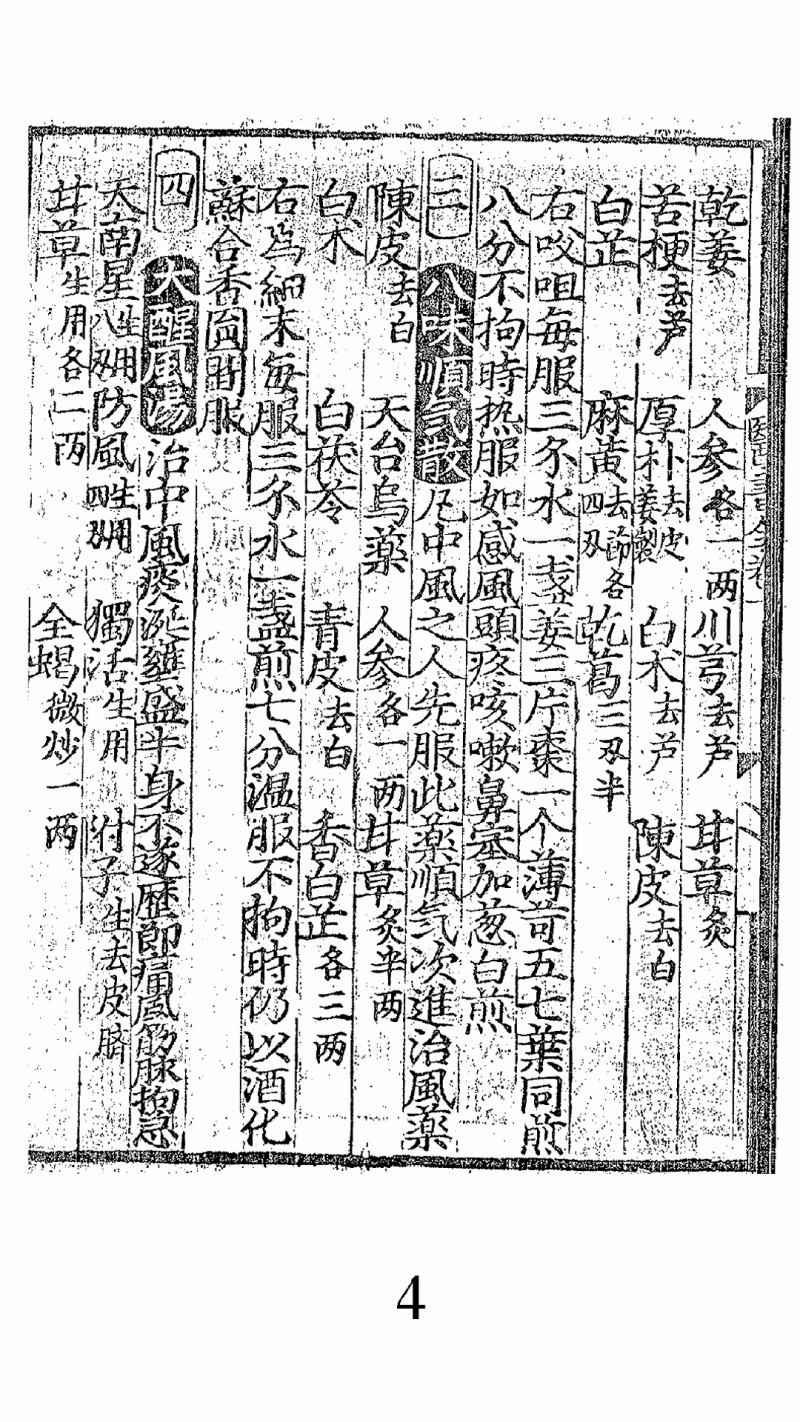 乾姜　人参各一两　川芎去芦　甘草炙
苦梗去芦　厚朴去皮姜製　白术去芦　陳皮去白
白芷　麻黄去節各四刄　乾葛三刄半
右㕮咀每服三尒水一盏姜三片棗一个薄苛五七葉同煎
八分不拘時热服如感風頭疼咳嗽鼻塞加葱白煎
三　八味順气散　凡中風之人先服此薬順气次進治風薬
陳皮去白　天台烏薬　人参各一两　甘草炙半两
白术　白茯苓　青皮去白　香白芷各三两
右為細末每服三尒水一盏煎七分温服不拘時仍以酒化
蘇合香圎間服
四　大醒風湯　治中風痰涎壅盛半身不遂歷節痛風筋脉拘急
天南星生用八刄　防風生用四刄　獨活生用　付子生去皮臍
甘草生用各二两　全蝎微炒一两
4